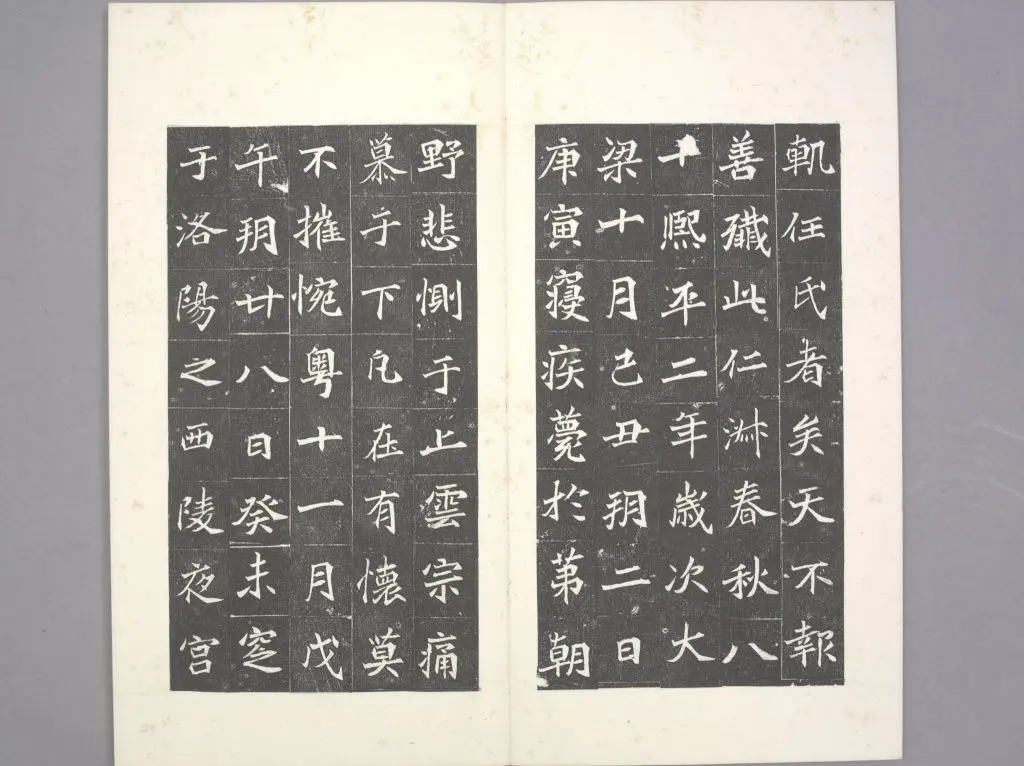 軌任氏者矣天不報
善殲此仁淑春秋八
十熙平二年歲次大
梁十月己丑朔二日
庚寅寢疾薨於第朝
野悲惻于上雲宗痛
慕于下凡在有懷莫
不摧惋粵十一月戊
午朔廿八日癸未窆
于洛陽之西陵夜宮